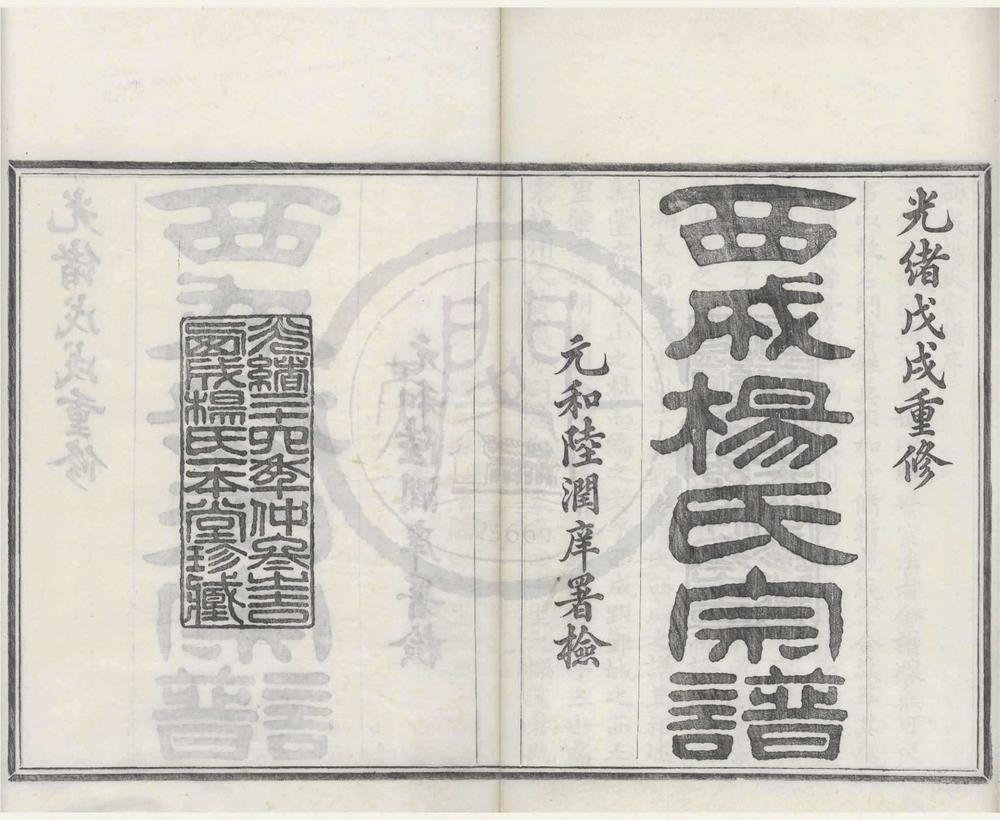 光緒戊戌重修
西成楊氏宗譜
元和陸潤庠署檢
光緒二十四年仲
西成楊氏本堂珍藏